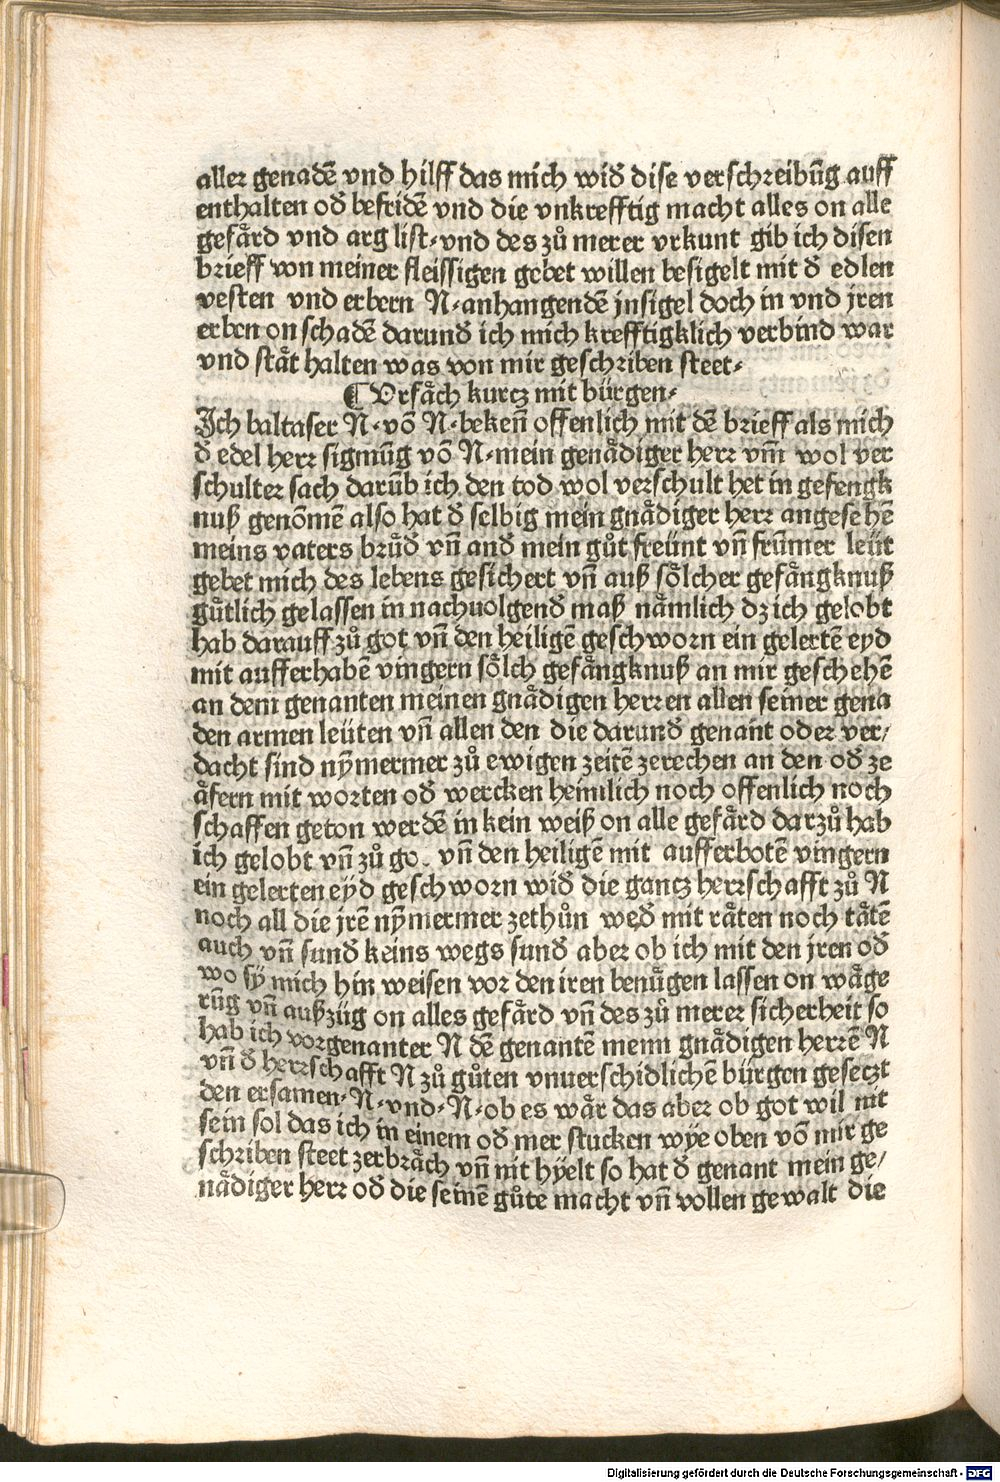 aller genadē vnd hilff das mich wid̄ dise verschreibūg auff
enthalten od̄ befridē vnd die vnkrefftig macht alles on alle
gefård vnd arg list⸗vnd des zů merer vrkunt gib ich disen
brieff von meiner fleissigen gebet willen besigelt mit d̄ edlen
vesten vnd erbern N⸗anhangendē jnsigel doch in vnd jren
erben on schadē darund̄ ich mich krefftigklich verbind war
vnd ståt halten was von mir geschriben steet⸗
¶ Vrfåch kurcz mit bürgen⸗
Ich baltaser N⸗vō N⸗bekeñ offenlich mit dē brieff als mich
d̄ edel herr sigmūg vō N⸗mein genådiger herr vm̄ wol ver
schulter sach darūb ich den tod wol verschult het in gefengk
nuß genōmē also hat d̄ selbig mein gnådiger herr angesehē
meins vaters brůd̄ vñ and̄ mein gůt freünt vñ frūmer leüt
gebet mich des lebens gesichert vñ auß sölcher gefångknuß
gůtlich gelassen in nachuolgend̄ maß nåmlich dz ich gelobt
hab darauff zů got vñ den heiligē geschworn ein gelertē eyd
mit aufferhabē vingern sölch gefångknuß an mir geschehē
an dem genanten meinen gnådigen herren allen seiner gena
den armen leüten vñ allen den die darund̄ genant oder ver/
dacht sind nȳmermer zů ewigen zeitē zerechen an den od̄ ze
åfern mit worten od̄ wercken heimlich noch offenlich noch
schaffen geton werdē in kein weiß on alle gefård darzů hab
ich gelobt vñ zů go. vñ den heiligē mit aufferbotē vingern
ein gelerten eyd geschworn wid̄ die gancz herrschafft zů N
noch all die jrē nȳmermer zethůn wed̄ mit råten noch tåtē
auch vñ sund̄ keins wegs sund̄ aber ob ich mit den jren od̄
wo sÿ mich hin weisen vor den iren benůgen lassen on wåge
rūg vñ außzüg on alles gefård vñ des zů merer sicherheit so
hab ich vorgenanter N dē genantē meinn gnådigen herrē N
vñ d̄ herrschafft N zů gůten vnuerschidlichē bürgen gesetzt
den ersamen⸗N⸗vnd⸗N⸗ob es wår das aber ob got wil nit
sein sol das ich in einem od̄ mer stucken wÿe oben vō mir ge
schriben steet zerbråch vñ nit hÿelt so hat d̄ genant mein ge/
nådiger herr od̄ die seinē gůte macht vñ vollen gewalt die
Digitalisierung gefördert durch die Deutsche Forschungsgemeinschaft - DFG